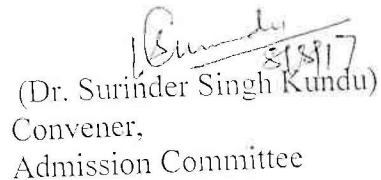 8/8/17
(Dr. Surinder Singh Kundu)
Convener,
Admission Committee